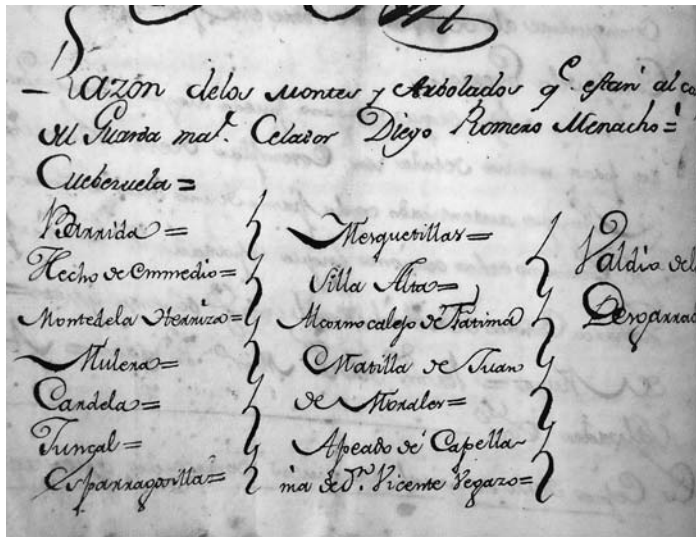 Razón delos Montes y Arbolados q.e están al ca
del Guarda ma.r Celador Diego Romero Menacho=
Cueberuela=
Barrida=
Hecho de Enmedio=
Monte dela Herriza=
Mulera=
Candela=
Juncal=
Esparragosilla=
Mesquetillas=
Silla Alta=
Alcornocalejo de Fatima
Matilla de Juan
de Morales=
Apeado de Capella
nia de D.n Vicente Vegazo=
Valdio del
Desgarrad